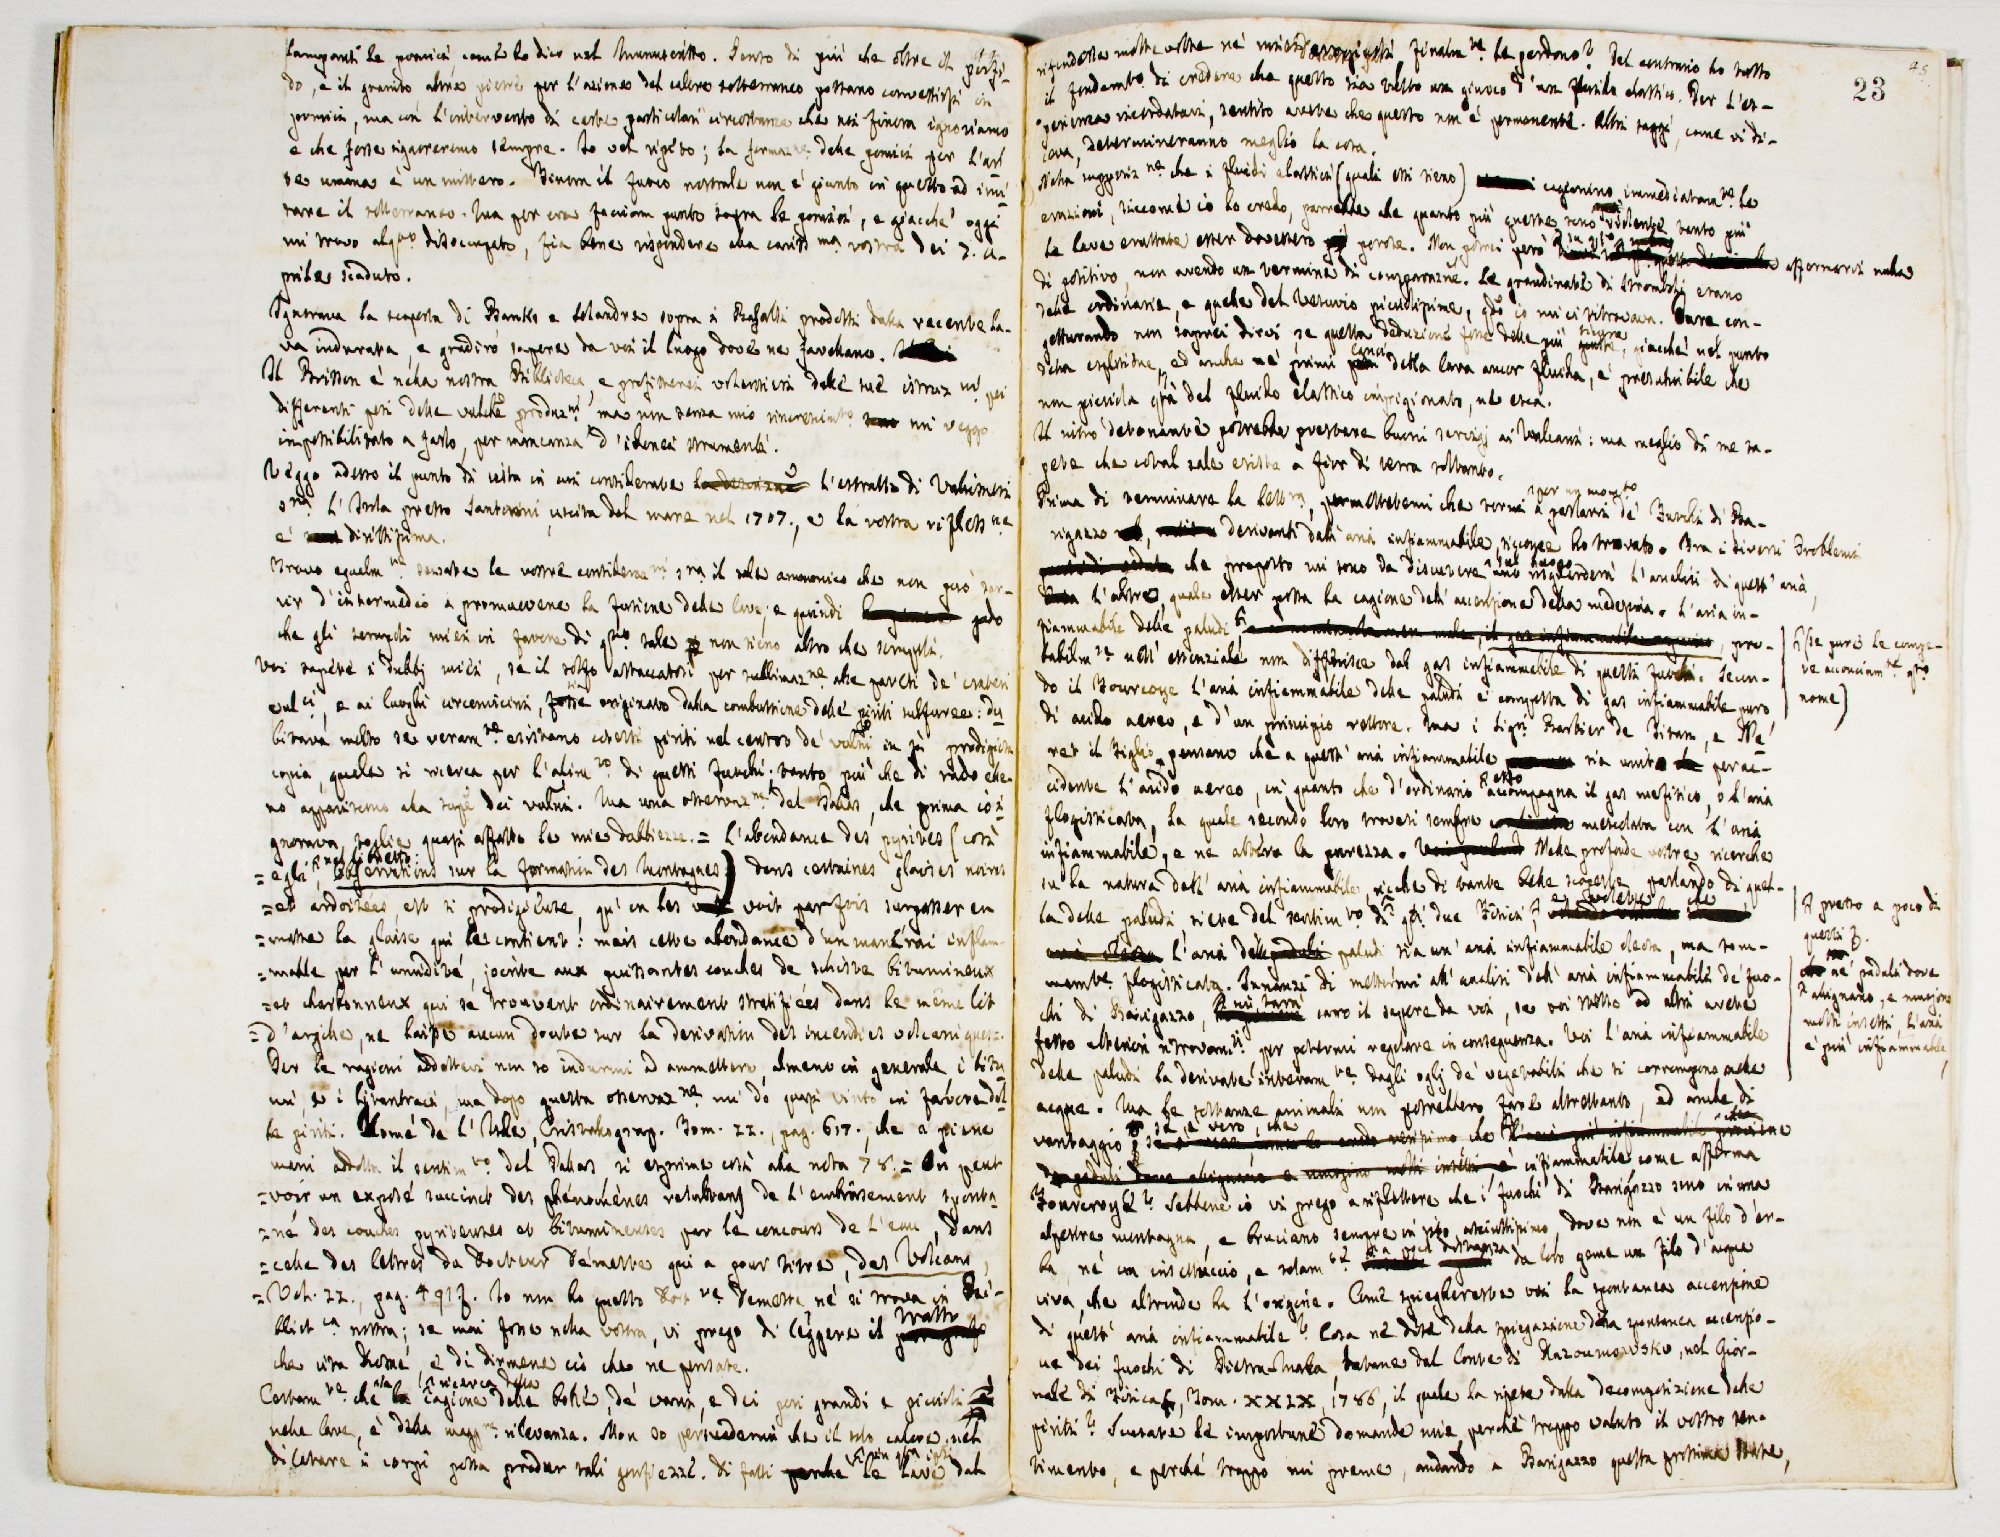 le pomici come lo dico nel Manuscritto. Sento di più che oltre il porfi-
do, e il granito altre pietre per l'azione del calore sotterraneo possano convertirsi in
pomici, ma con l'intervento di certe particolari circostanze che noi finora ignoriamo
e che forse ignoreremo sempre. Io vel ripeto; la formaz.ne delle pomici per l'ar
te umana è un mistero. Finora il fuoco nostrale non è giunto in questo ad imi
tare il sotterraneo. Ma per ora facciam punto sopra le pomici, e giacchè oggi
mi trovo alq.to disoccupato, fia bene rispondere alla cariss.ma vostra dei 7. A-
prile scaduto.
Ignorava la scoperta di Banks e Solandre sopra i Basalti prodotti dalla recente la-
va indurata, e gradirò sapere da voi il luogo dove ne favellano.
Il Brisson è nella nostra Biblioteca, e profitterei volentieri delle sue istruz.ni pei
differenti pesi delle vulc.e produz.ni, ma non senza mio rincrescim.to mi veggo
impossibilitato a farlo, per mancanza d'idonei strumenti.
Veggo adesso il punto di vista in cui considerate l'estratto di Valisnieri
s.ra l'Isola presso Santorini, uscita del mare nel 1707., e la vostra rifless.ne
è dirittissima.
Trovo egualm.te sensate le vostre consideraz.ni s.ra il sale ammonico che non può ser-
vir d'intermedio a promuovere la fusione delle lave, e quindi godo
che gli scrupoli miei in favore di q.sto sale non sieno altro che scrupoli.
Voi sapete i dubbj miei, se il solfo attaccatosi per sublimaz.ne alle pareti de' crateri
vulc.i, e ai luoghi circonvicini, fosse originato dalla combustione delle piriti sulfuree: du
bitava molto se veram.te esistano cotesti piriti nel centro de' vulc.i in sì prodigiosa
copia, quale si ricerca per l'alim.to di questi fuochi; tanto più che di rado elle-
no appariscono alla sup.e dei vulcni. Ma una osservaz.ne del Pallas, che prima io i
gnorava, toglie quasi affatto le mie dubbiezze. = L'abondance des pyrites (così
= egli, nel libretto: Observations sur la formation des Montagnes) dans certaines glaises noires
= et ardoisées, est si prodigieuse, qu'on les voit par fois surpasser en
= masse la glaise qui les contient: mais cette abondance d'un minérai inflam-
= mable par l'umidité, jointe aux puissantes couches de schiste bitumineux
= et charbonneux qui se trouvent ordinairement stratifiées dans le même lit
= d'argile, ne laisse aucun doute sur la derivation des incendies volcaniques =.
Per le ragioni addottevi non so indurmi ad ammettere, almeno in generale i bitu
mi, e i litantraci, ma dopo questa osservaz.ne mi do quasi vinto in favore del
le piriti. Romé de l'Isle, Cristallograp. Tom. II., pag. 617., che a piene
mani addotta il sentim.to del Pallas si esprime così alla nota 78. = On peut
= voir un exposé succinct des phénoménes resultans de l'embrâsement sponta
= né des couches pyriteuses et bitumineuses par le concours de l'eau, dans
= celle des lettres du Docteur Démeste qui a pour titre, des Volcans,
= Vol. II., pag. 491 f. Io non ho questo Dot.re Demeste, né si trova in Bi-
bliot.ca nostra; se mai fosse nella vostra, vi prego di leggere il tratto
che cita Romé, e di dirmene ciò che ne pensate.
Certam.te che alla ricerca della cagione delle bolle, de' vacui, e dei pori grandi e piccioli
nelle lave, è della magg.re rilevanza. Non so persuadermi che il solo calore nel
dilatare i corpi possa produr tali gonfiezze. Di fatti le lave dal
23
rifondesse molte volte ne' miei finalm.te le perdono? Del contrario ho tutto
il fondam.to di credere che questo sia bello un giuoco d'un fluido elastico. Per l'es-
perienza ricordatavi, sentito avete che questo non è permanente. Altri saggi, come vi di-
ceva, determineranno meglio la cosa.
Nella supposiz.ne che i fluidi elastici (quali essi sieno) cagionino immediatam.te le
eruzioni, siccome io lo credo, parrebbe che quanto più queste sono violente, tanto più
le lave eruttate esser dovessero porose. Non potrei però affermarvi nulla
di positivo, non avendo un termine di comparaz.ne. Le grandinate di Stromboli erano
delle ordinarie, e quelle del Vesuvio picciolissime, q.do io mi ci ritrovava. Pure con-
getturando non saprei dirvi se questa deduzione fosse delle più sicure, giacchè nel punto
della esplosione, ed anche ne' primi della lava ancor fluida, è presumibile che
non picciola q.tà del fluido elastico imprigionato, ne esca.
Il nitro detonante potrebbe prestare buoni servigj ai Vulcani: ma meglio di me sa-
pete che cotal sale esiste a fior di terra soltanto.
Prima di terminare la lett.ra, permettetemi che torni per un momento a parlarvi de' Fuochi di Ba-
rigazzo derivanti dall'aria infiammabile, siccome ho trovato. Tra i diversi Problemi
che proposto mi sono da disciorre uno risguarderà l'analisi di quest'aria,
l'altro, quale esser possa la cagione dell'accensione della medesima. L'aria in-
fiammabile delle paludi pro-
babilm.te nell'essenziale non differisce dal gas infiammabile di questi fuochi. Secon-
do il Fourcroy l'aria infiammabile delle paludi è composta di gas infiammabile puro
di acido aereo, e d'un principio rettore. Ma i Sig.ri Barbier de Tinan, e Me
ret il figlio pensano che a quest'aria infiammabile sia unito per ac-
cidente l'acido aereo, in quanto che d'ordinario esso accompagna il gas mefitico, o l'aria
flogisticata, la quale secondo loro trovasi sempre mescolata con l'aria
infiammabile, e ne altera la purezza. Nelle profonde vostre ricerche
su la natura dell'aria infiammabile, ricche di tante belle scoperte, parlando di quel-
la delle paludi, siete del sentim.to di q.sti due Fisici,
l'aria delle paludi sia un'aria infiammabile detta, ma som-
mam.te flogisticata. Innanzi di mettermi all'analisi dell'aria infiammabile de' fuo-
chi di Barigazzo, mi sarà caro il sapere da voi, se voi stesso od altri avete
fatto ulteriori ritrovam.ti per potermi regolare in conseguenza. Voi l'aria infiammabile
delle paludi la derivate interam.te dagli oglj de' vegetabili che si corrompono nelle
acque. Ma le sostanze animali non potrebbero fare altrettanto, ed anche di
vantaggio se è vero, che
infiammabile come afferma
Fourcroy? Sebbene io vi prego a riflettere che i fuochi di Barigazzo sono in una
alpestre montagna, e bruciano sempre in sito asciuttissimo dove non è un filo d'er-
ba, né un insettuccio, e solam.te a poca distanza da loro geme un filo d'acqua
viva, che altronde ha l'origine. Come spieghereste voi la spontanea accensione
di quest'aria infiammabile? Cosa ne dite della spiegazione della spontanea accensio-
ne dei fuochi di Pietra-Mala, datane dal Conte di Razoumowski, nel Gior-
nale di Fisica, Tom. XXIX, 1786, il quale la ripete dalla decomposizione delle
piriti? Scusate le importune domande mie, perchè troppo valuto il vostro sen-
timento, e perchè troppo mi preme, andando a Barigazzo questa prossima State,
(se pure le compe-
te acconciam.te q.sto
nome)
presso a poco di
questi
ne' paduli dove
alignano, e muojono
molti insetti, l'aria
è più infiammabile,